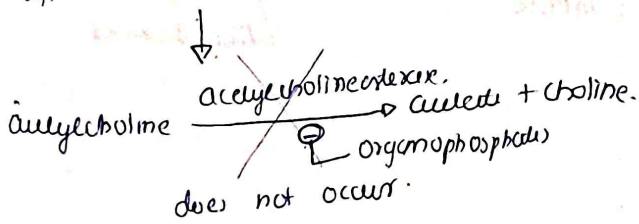 acetylcholinesterase.
acetylcholine → acetate + choline.
⊖ organophosphates
does not occur.